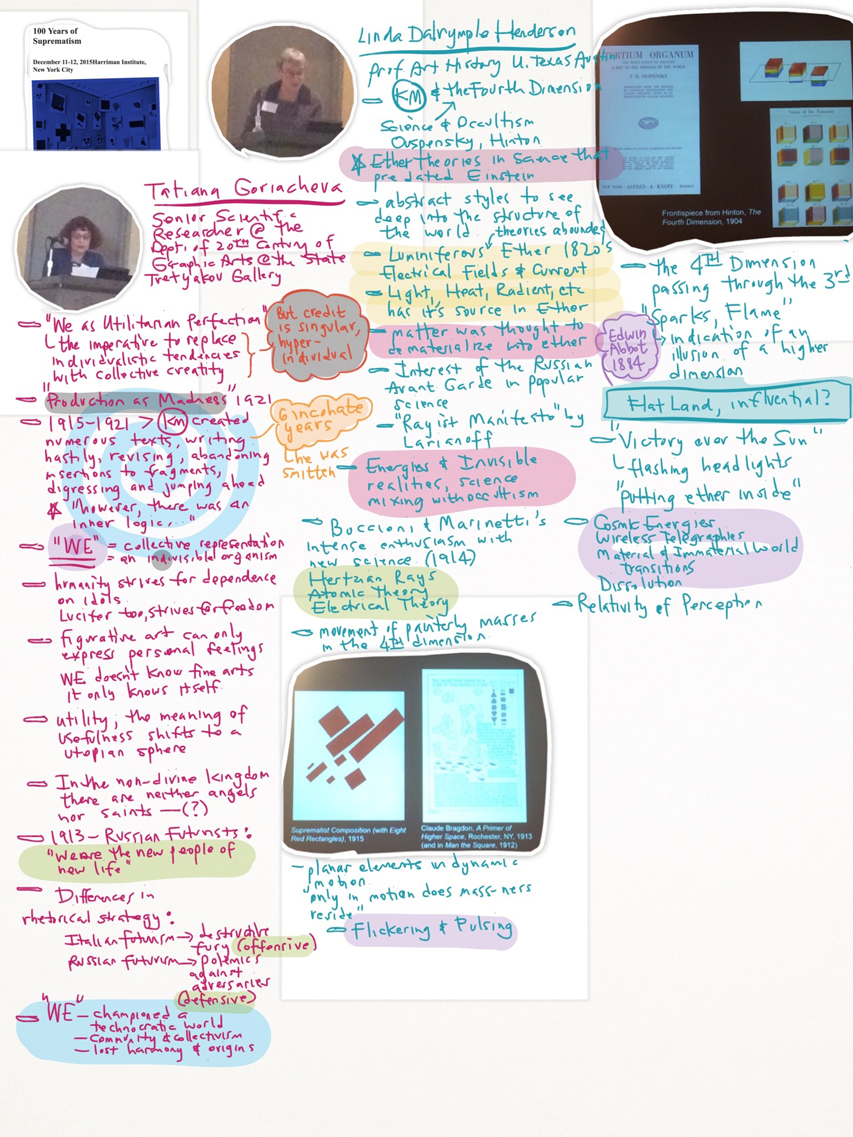 100 Years of
Suprematism
December 11-12, 2015Harriman Institute,
New York City
Tatiana Goriacheva
Senior Scientific
Researcher @ the
Dept. of 20th Century of
Graphic Arts @ the State
Tretyakov Gallery
"We as Utilitarian Perfection"
the imperative to replace
individualistic tendencies
with collective creatity
But credit
is singular,
hyper-
individual
"Production as Madness" 1921
1915-1921 > KM created
numerous texts, writing
hastily, revising, abandoning
insertions to fragments,
digressing and jumping ahead
"however, there was an
inner logic..."
6 incohate
years
he was
smitten
"WE" = collective representation
= an indivisible organism
humanity strives for dependence
on idols.
Lucifer too, strives for freedom
figurative art can only
express personal feelings
WE doesn't know fine arts
it only knows itself.
utility, the meaning of
usefulness shifts to a
utopian sphere
In the non-divine kingdom
there are neither angels
nor saints —(?)
1913 - Russian Futurists:
"We are the new people of
new life"
Differences in
rhetorical strategy:
Italian futurism → destructive
fury (offensive)
Russian futurism → polemics
against
adversaries
(defensive)
"WE" - championed a
technocratic world
- community & collectivism
- lost harmony & origins
Linda Dalrymple Henderson
Prof Art History U. Texas Austin
KM & the Fourth Dimension
Science & Occultism
Ouspensky, Hinton
Ether theories in Science that
pre dated Einstein
abstract styles to see
deep into the structure of
the world. theories abounded
Luminiferous Ether 1820's
Electrical Fields & Current
Light, Heat, Radient, etc
has it's source in Ether
matter was thought to
dematerialize into ether
Interest of the Russian
Avant Garde in popular
science
"Rayist Manifesto" by
Larianoff
Energies & Invisible
realities, science
mixing with occultism
Buccioni & Marinetti's
intense enthusiasm with
new science (1914)
Hertzian Rays
Atomic Theory
Electrical Theory
movement of painterly masses
in the 4th dimension.
Suprematist Composition (with Eight
Red Rectangles), 1915
Claude Bragdon, A Primer of
Higher Space, Rochester, NY, 1913
(and in Man the Square, 1912)
- planar elements in dynamic
motion.
"only in motion does mass-ness
reside"
Flickering & Pulsing
TERTIUM ORGANUM
P. D. OUSPENSKY
NEW YORK ALFRED A KNOPF
Frontispiece from Hinton, The
Fourth Dimension, 1904
the 4th Dimension
passing through the 3rd
"Sparks, Flame"
indication of an
illusion of a higher
dimension
Edwin
Abbot
1884
Flat Land, influential?
"Victory over the Sun"
flashing headlights
"putting ether inside"
Cosmic Energies
Wireless Telegraphies
Material & Immaterial World
transitions
Dissolution
Relativity of Perception